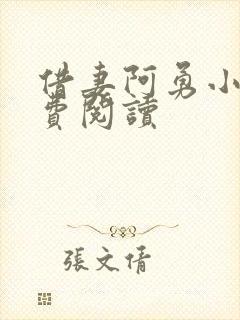 借妻阿勇小
費閱讀
張文倩